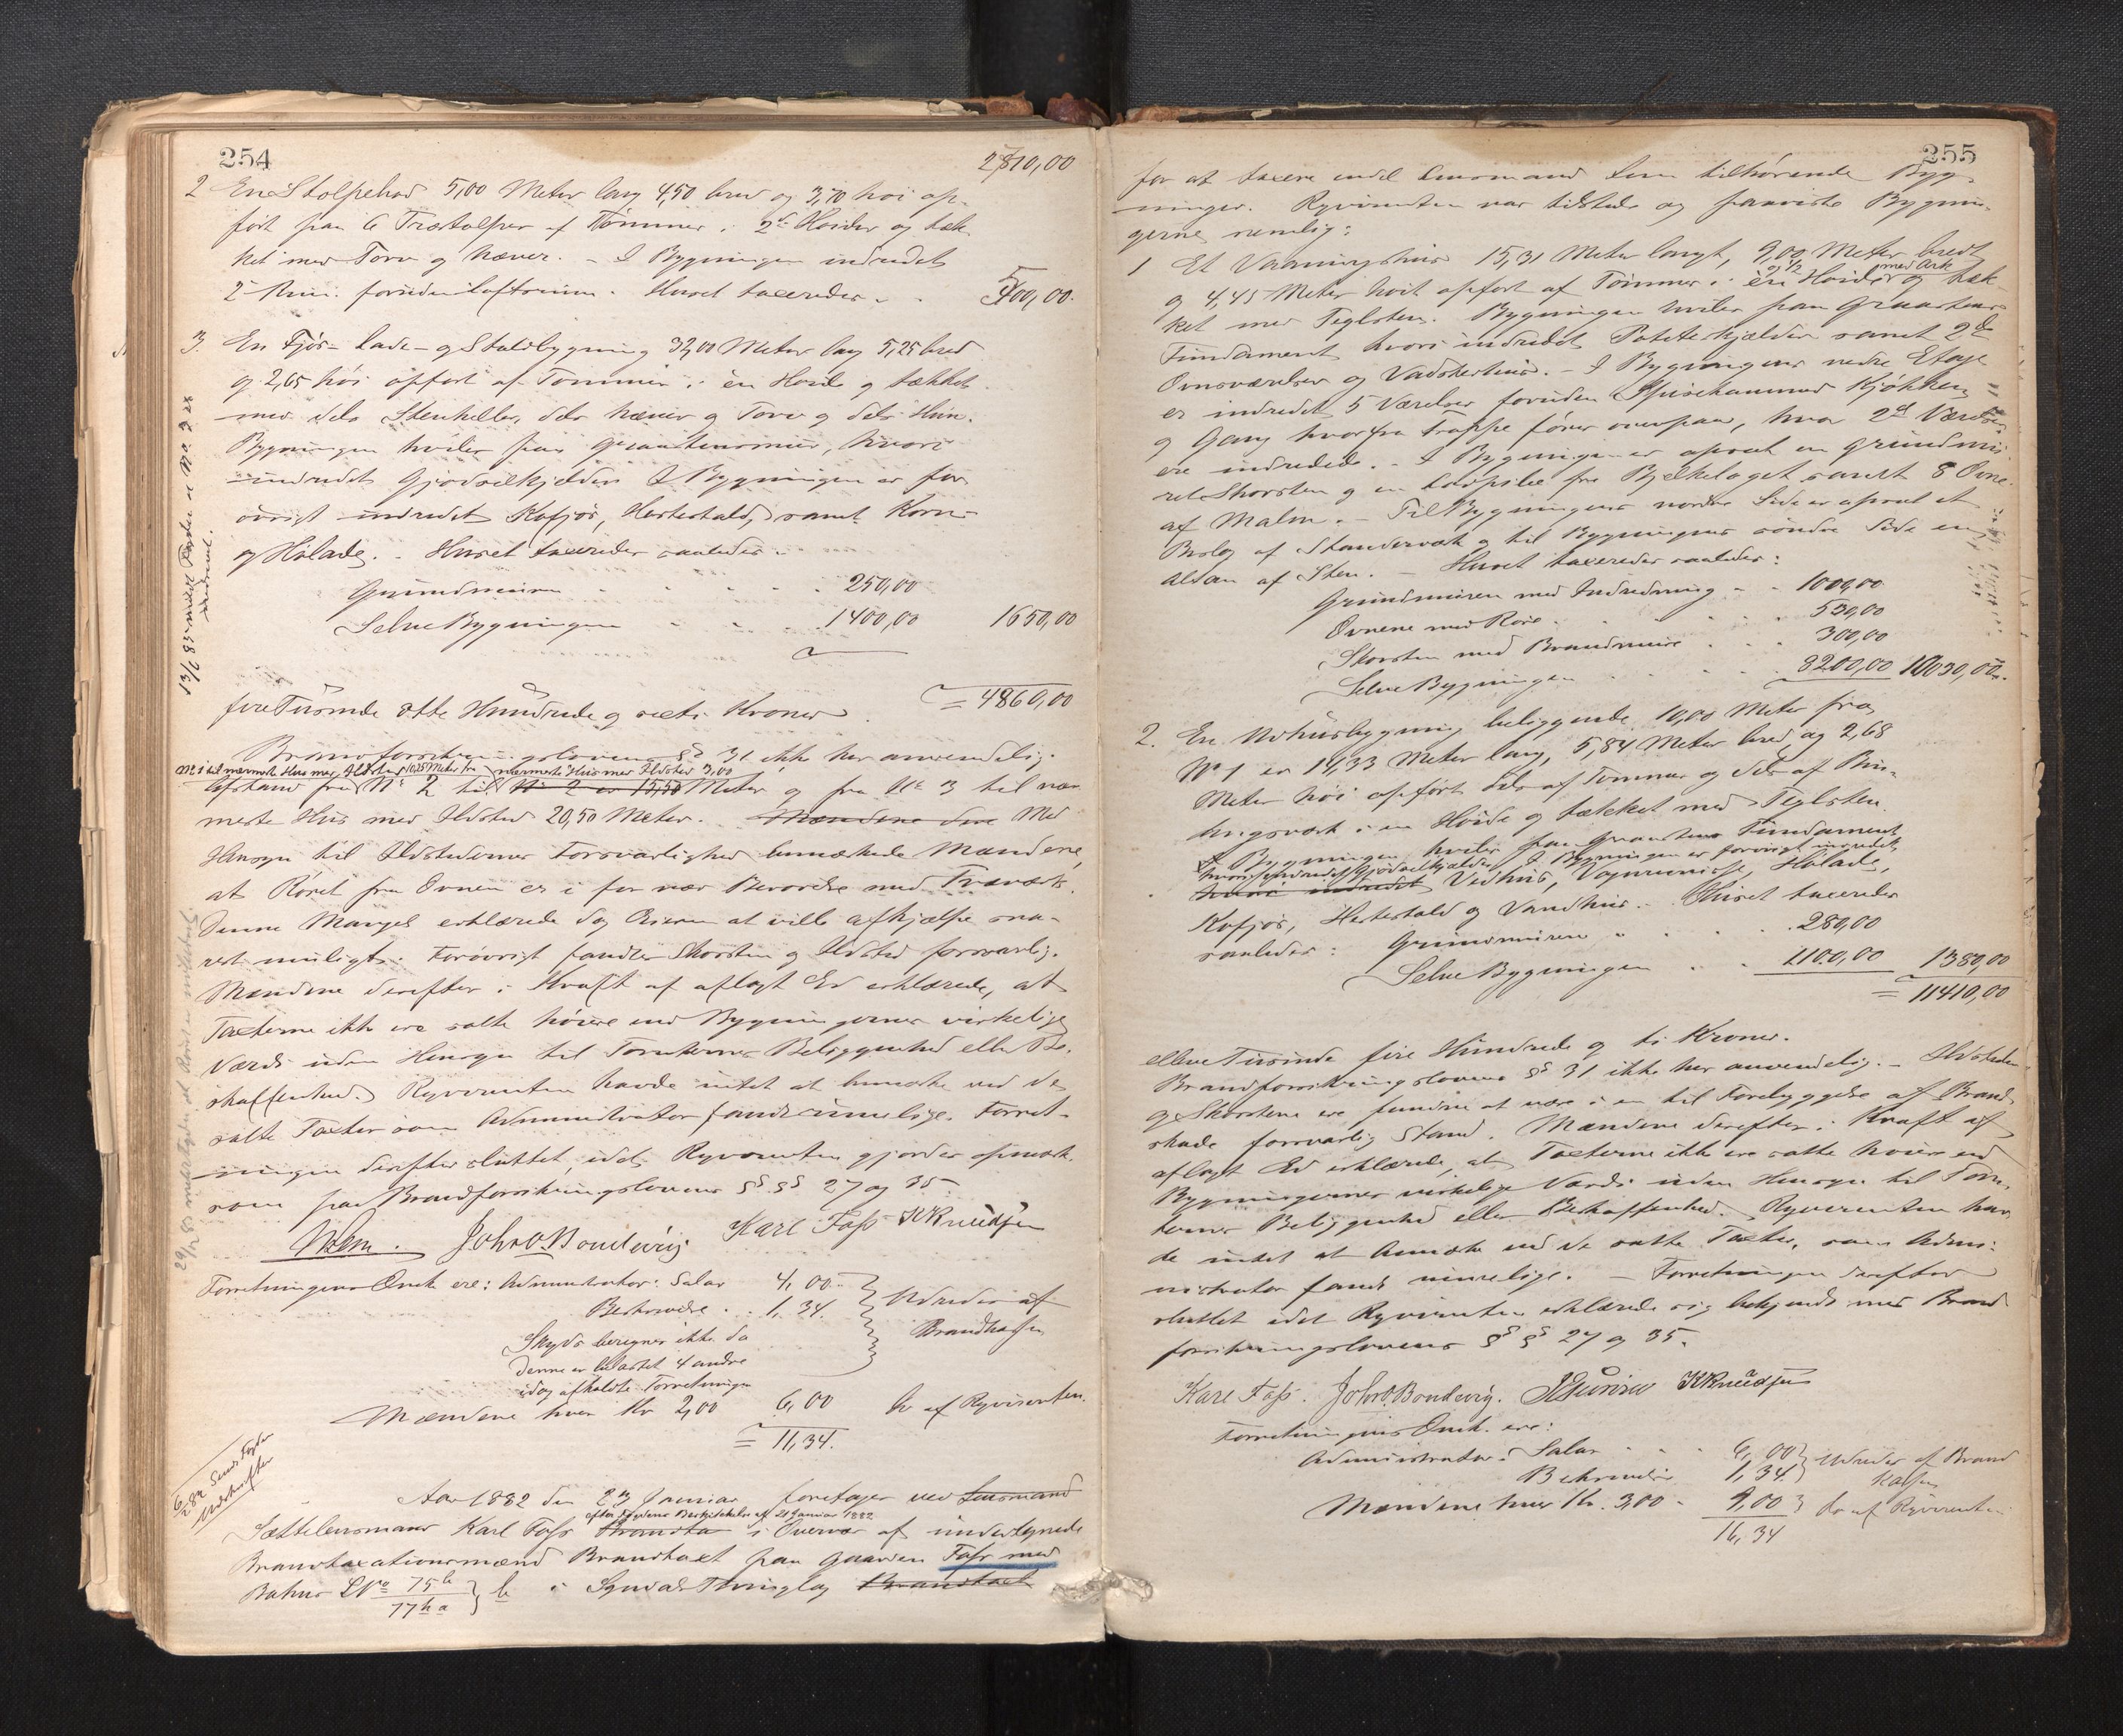 254
2810,00
2 En Stolpebod 5,00 Meter lang 4,50 bred og 3,70 høi op-
ført paa 6 Træstolper af Tømmer i 2de Høider og tæk-
ket med Torv og Næver. – I Bygningen indredet
2de Rum foruden Loftsrum. Huset taxeredes . . 400,00.
3. En Fjøs- Lade- og Staldbygning 32,00 Meter lang 5,25 bred
og 2,65 høi opført af Tømmer i èn Høide og tækket
med dels Steinheller, dels Næver og Torv og dels
Bygningen hviler paa Graastensmur, hvori
indredet Gjødselkjelder. I Bygningen er for-
øvrigt indredet Kofjøs, Hestestald, samt Korn-
og Hølade. – Huset taxeredes saaledes:
Grundmuren . . . . 250,00
Selve Bygningen . . . 1400,00 1650,00
= 4860,00
fire Tusinde otte Hundrede og sexti Kroner.
Brandforsikringslovens §§ 31 ikke her anvendelig.
No 1 til nærmeste Hus med Ildsted 10,25 Meter fra nærmeste Hus med Ildsted 3,00
Afstand fra No 2 til No 2 er 13,50 Meter og fra No 3 til nær-
meste Hus med Ildsted 20,50 Meter. Mændene Med
Hensyn til Ildstedernes Forsvarlighed bemærkede Mændene,
at Røret fra Ovnen er i for nær Berørelse med Træværk.
Denne Mangel erklærede dog Eieren at ville afhjælpe sna-
rest muligt. Forøvrigt fandtes Skorsten og Ildsted forsvarlig.
Mændene derefter i Kraft af aflagt Ed erklærede, at
Taxterne ikke ere satte høiere end Bygningernes virkelige
Værdi uden Hensyn til Tomternes Beliggenhed eller Be-
skaffenhed. Rekvirenten havde intet at bemærke ved de
satte Taxter som Administrator fandt rimelige. Forret-
ningen derefter sluttet, idet Rekvirenten gjordes opmærk-
som paa Brandforsikringslovens §§ 27 og 35.
John O. Bondevig. Karl Fass K Knudsen
Forretningens Omk. ere: Administrator: Salær 4,00
Beskrivelse . . 1,34.
Udredes af
Brandkassen
Skyds beregnes ikke da
denne er belastet 4 andre
idag afholdte Forretninger
Mændene hver Kr 2,00 6,00 do af Rekvirenten.
= 11,34.
Aar 1882 den 23 Januar foretoges ved Lensmand
efter Fogdens Beskikkelse af 21 Januar 1882
Sættelensmand Karl Fass i Overvær af undertegnede
Brandtaxationsmænd Brandtaxt paa Gaarden Fass med
Bakus LNo 75b / 77ba } b i Thinglag Brandtaxt
255
for at taxere endel Lensmand tilhørende Byg-
ninger. Rekvirenten var tilstede og paaviste Bygnin-
gerne nemlig:
1 Et Vaaningshus 15,31 Meter langt, 9,00 Meter bredt
og 1/2 med Ark
og 4,45 Meter høit opført af Tømmer i èn Høide og tæk-
ket med Teglsten. Bygningen hviler paa Graastens
Fundament hvori indredet Potetkjælder samt 2de
Ovnsværelser og Vadskerhus. – I Bygningens nedre Etage
er indredet 5 Værelser foruden Spisekammer Kjøkken
og Gang hvorfra Trappe fører ovenpaa, hvor 2de Værelser
ere indredede. – I Bygningen er opsat en grundmu-
ret Skorsten og en Løspibe fra Bjelkelaget samt 8 Ovne
af Malm. – Til Bygningens nordre Side er opsat et
Bislag af Standerværk og til Bygningens søndre Side en
Altan af Sten. – Huset taxeredes saaledes:
Grundmuren med Indredning . . 1000,00
Ovnene med Rør . . . . 530,00
Skorsten med Brandmure . . . 300,00
Selve Bygningen . . . . 8200,00 10030,00.
2. En Udhusbygning beliggende 10,00 Meter fra
No 1 er 14,33 Meter lang, 5,84 Meter bred og 2,68
Meter høi opført dels af Tømmer og dels af Bin-
dingsværk i en Høide og tækket med Teglsten.
Bygningen hviler paa Graastens Fundament
hvori indredet Gjødselkjelder I Bygningen er forøvrigt indredet
hvori indredet Vedhus, Vognremisse, Hølade,
Kofjøs, Hestestald og Vandhus. – Huset taxeredes
saaledes: Grundmuren . . . . 280,00
Selve Bygningen . . 1100,00 1380,00
= 11410,00
elleve Tusinde fire Hundrede og ti Kroner.
Brandforsikringslovens §§ 31 ikke her anvendelig. – Ildsteder
og Skorstene ere fundne at være i en til Forebyggelse af Brand-
skade forsvarlig Stand. Mændene derefter i Kraft af
aflagt Ed erklærede, at Taxterne ikke ere satte høiere end
Bygningernes virkelige Værdi uden Hensyn til Tom-
ternes Beliggenhed eller Beskaffenhed. Rekvirenten hav-
de intet at bemærke ved de satte Taxter, som Admi-
nistrator fandt rimelige. – Forretningen derefter
sluttet idet Rekvirenten erklærede sig bekjendt med Brand-
forsikringslovens §§ 27 og 35.
Karl Fass. John O. Bondevig. K Knudsen
Forretningens Omk. ere:
Administrator: Salær . . . 6,00
Beskrivelse 1,34
Udredes af Brand-
kassen
Mændene hver Kr. 3,00 – 9,00 do af Rekvirenten
16,34